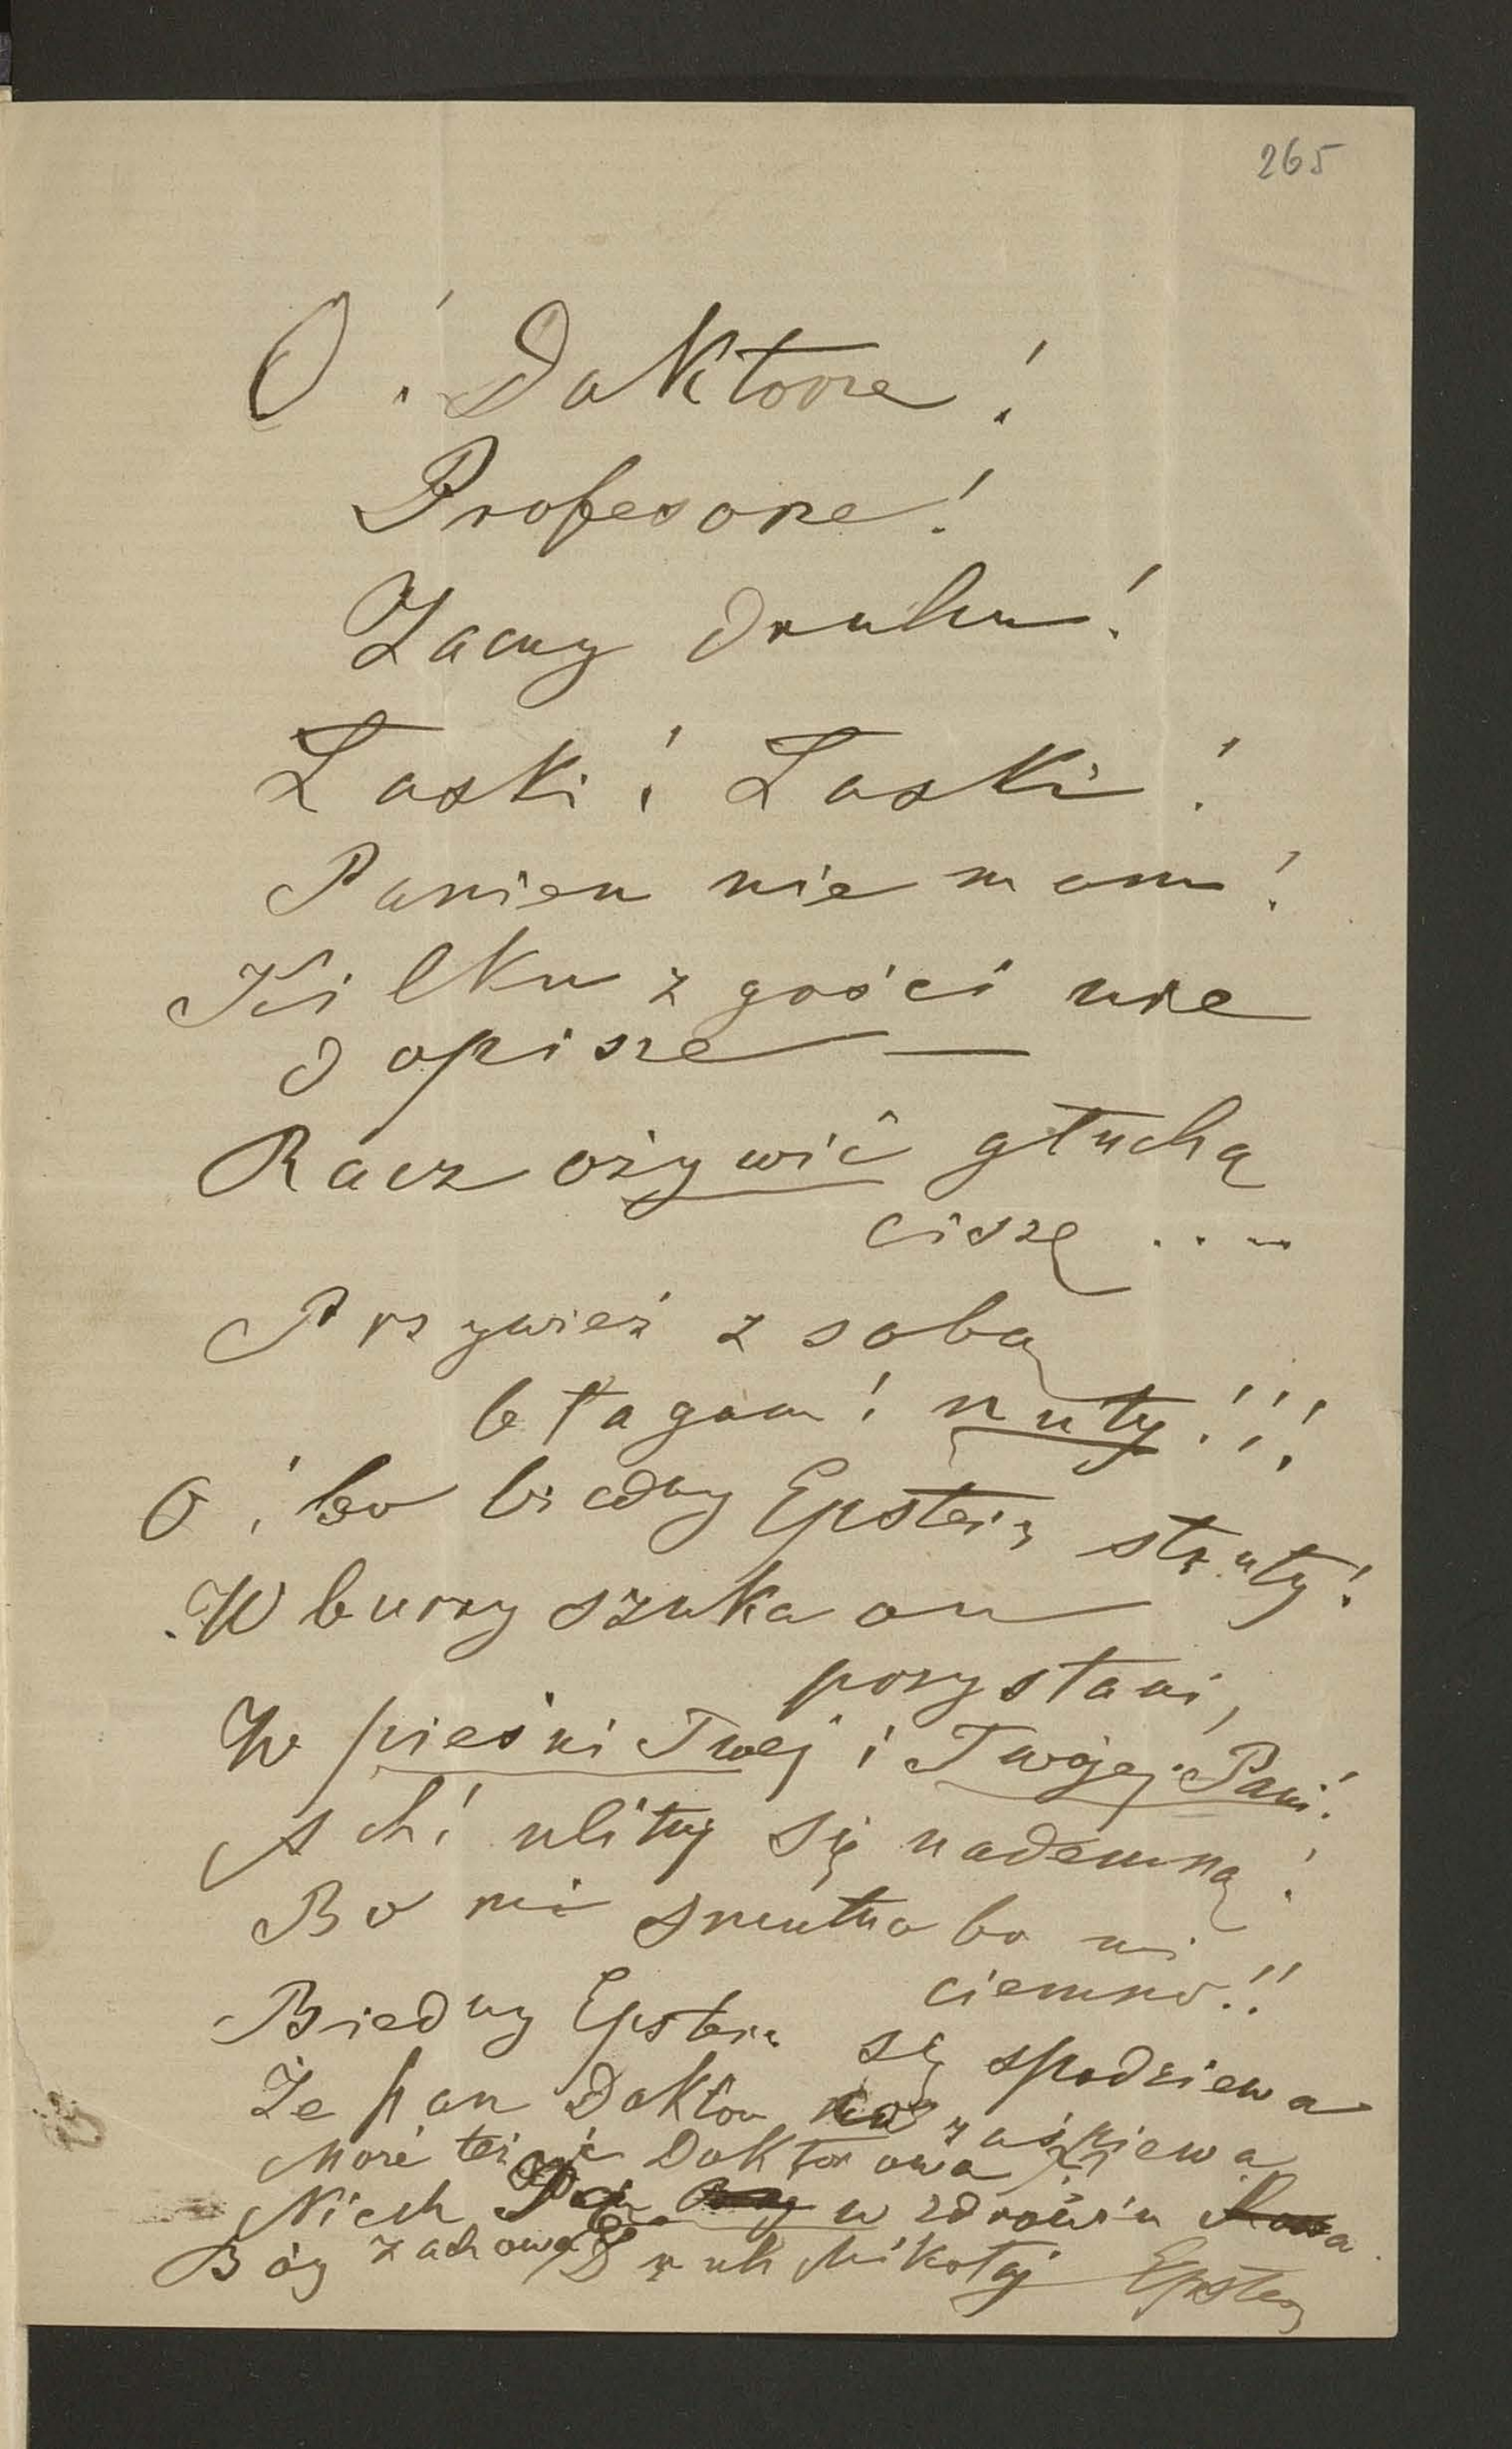 265
O! Doktorze!
Profesorze!
Zacny druhu!
Łaski! Łaski!
Panien nie mam!
Kilku z gości nie
dopisze —
Racz ożywić głuchą
ciszę ....
Przywieź z sobą
błagam! nuty!!!
O! bo biedny Epstein struty!
W burzy szuka on
przystani,
W pieśni Twej i Twojej Pani!
Ach! ulituj się nademną!
Bo mi smutno bo mi
ciemno!!
Biedny Epstein się spodziewa
Że pan Doktor zaśpiewa
Może też i Doktorowa
Niech w zdrowiu
Bóg zachowa Druh Mikołaj Epstein